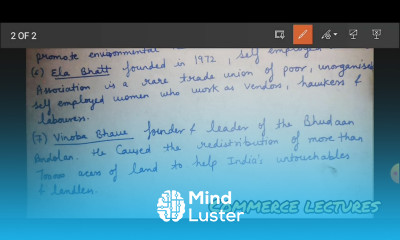 2 OF 2
promote environmental
(6) Ela Bhatt founded in 1972, self employed
Association is a rare trade union of poor, unorganised
self employed women who work as vendors, hawkers &
labourers.
(7) Vinoba Bhave founder & leader of the Bhudaan
Andolan. He caused the redistribution of more than
acres of land to help India's untouchables
& landless.
Mind
Luster
COMMERCE LECTURES